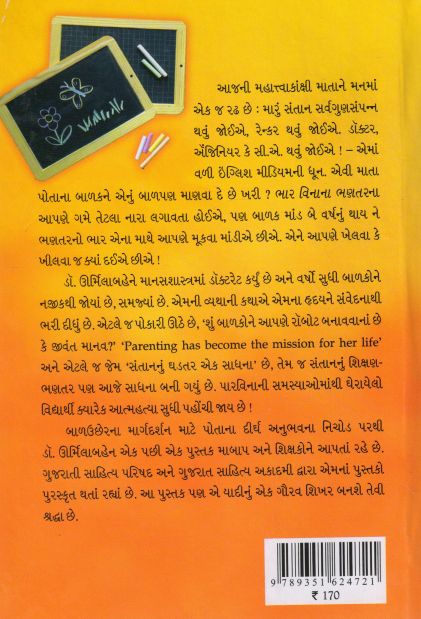 આજની મહાત્ત્વાકાંક્ષી માતાને મનમાં
એક જ રઢ છે : મારું સંતાન સર્વગુણસંપન્ન
થવું જોઈએ, રેન્કર થવું જોઈએ. ડૉક્ટર,
એંજિનિયર કે સી.એ. થવું જોઈએ ! – એમાં
વળી ઇંગ્લિશ મીડિયમની ધૂન. એવી માતા
પોતાના બાળકને એનું બાળપણ માણવા દે છે ખરી ? ભાર વિનાના ભણતરના
આપણે ગમે તેટલા નારા લગાવતા હોઈએ, પણ બાળક માંડ બે વર્ષનું થાય ને
ભણતરનો ભાર એના માથે આપણે મૂકવા માંડીએ છીએ. એને આપણે ખેલવા કે
ખીલવા જ ક્યાં દઈએ છીએ !
ડૉ. ઊર્મિલાબહેને માનસશાસ્ત્રમાં ડૉક્ટરેટ કર્યું છે અને વર્ષો સુધી બાળકોને
નજીકથી જોયાં છે, સમજ્યાં છે. એમની વ્યથાની કથાએ એમના હૃદયને સંવેદનાથી
ભરી દીધું છે. એટલે જ પોકારી ઊઠે છે, ‘શું બાળકોને આપણે રૉબોટ બનાવવાનાં છે
કે જીવંત માનવ?’ ‘Parenting has become the mission for her life’
અને એટલે જ જેમ ‘સંતાનનું ઘડતર એક સાધના’ છે, તેમ જ સંતાનનું શિક્ષણ-
ભણતર પણ આજે સાધના બની ગયું છે. પારવિનાની સમસ્યાઓમાંથી ઘેરાયેલો
વિદ્યાર્થી ક્યારેક આત્મહત્યા સુધી પહોંચી જાય છે !
બાળઉછેરના માર્ગદર્શન માટે પોતાના દીર્ઘ અનુભવના નિચોડ પરથી
ડૉ. ઊર્મિલાબહેન એક પછી એક પુસ્તક માબાપ અને શિક્ષકોને આપતાં રહે છે.
ગુજરાતી સાહિત્ય પરિષદ અને ગુજરાત સાહિત્ય અકાદમી દ્વારા એમનાં પુસ્તકો
પુરસ્કૃત થતાં રહ્યાં છે. આ પુસ્તક પણ એ યાદીનું એક ગૌરવ શિખર બનશે તેવી
શ્રદ્ધા છે.
9 789351 624721
₹ 170